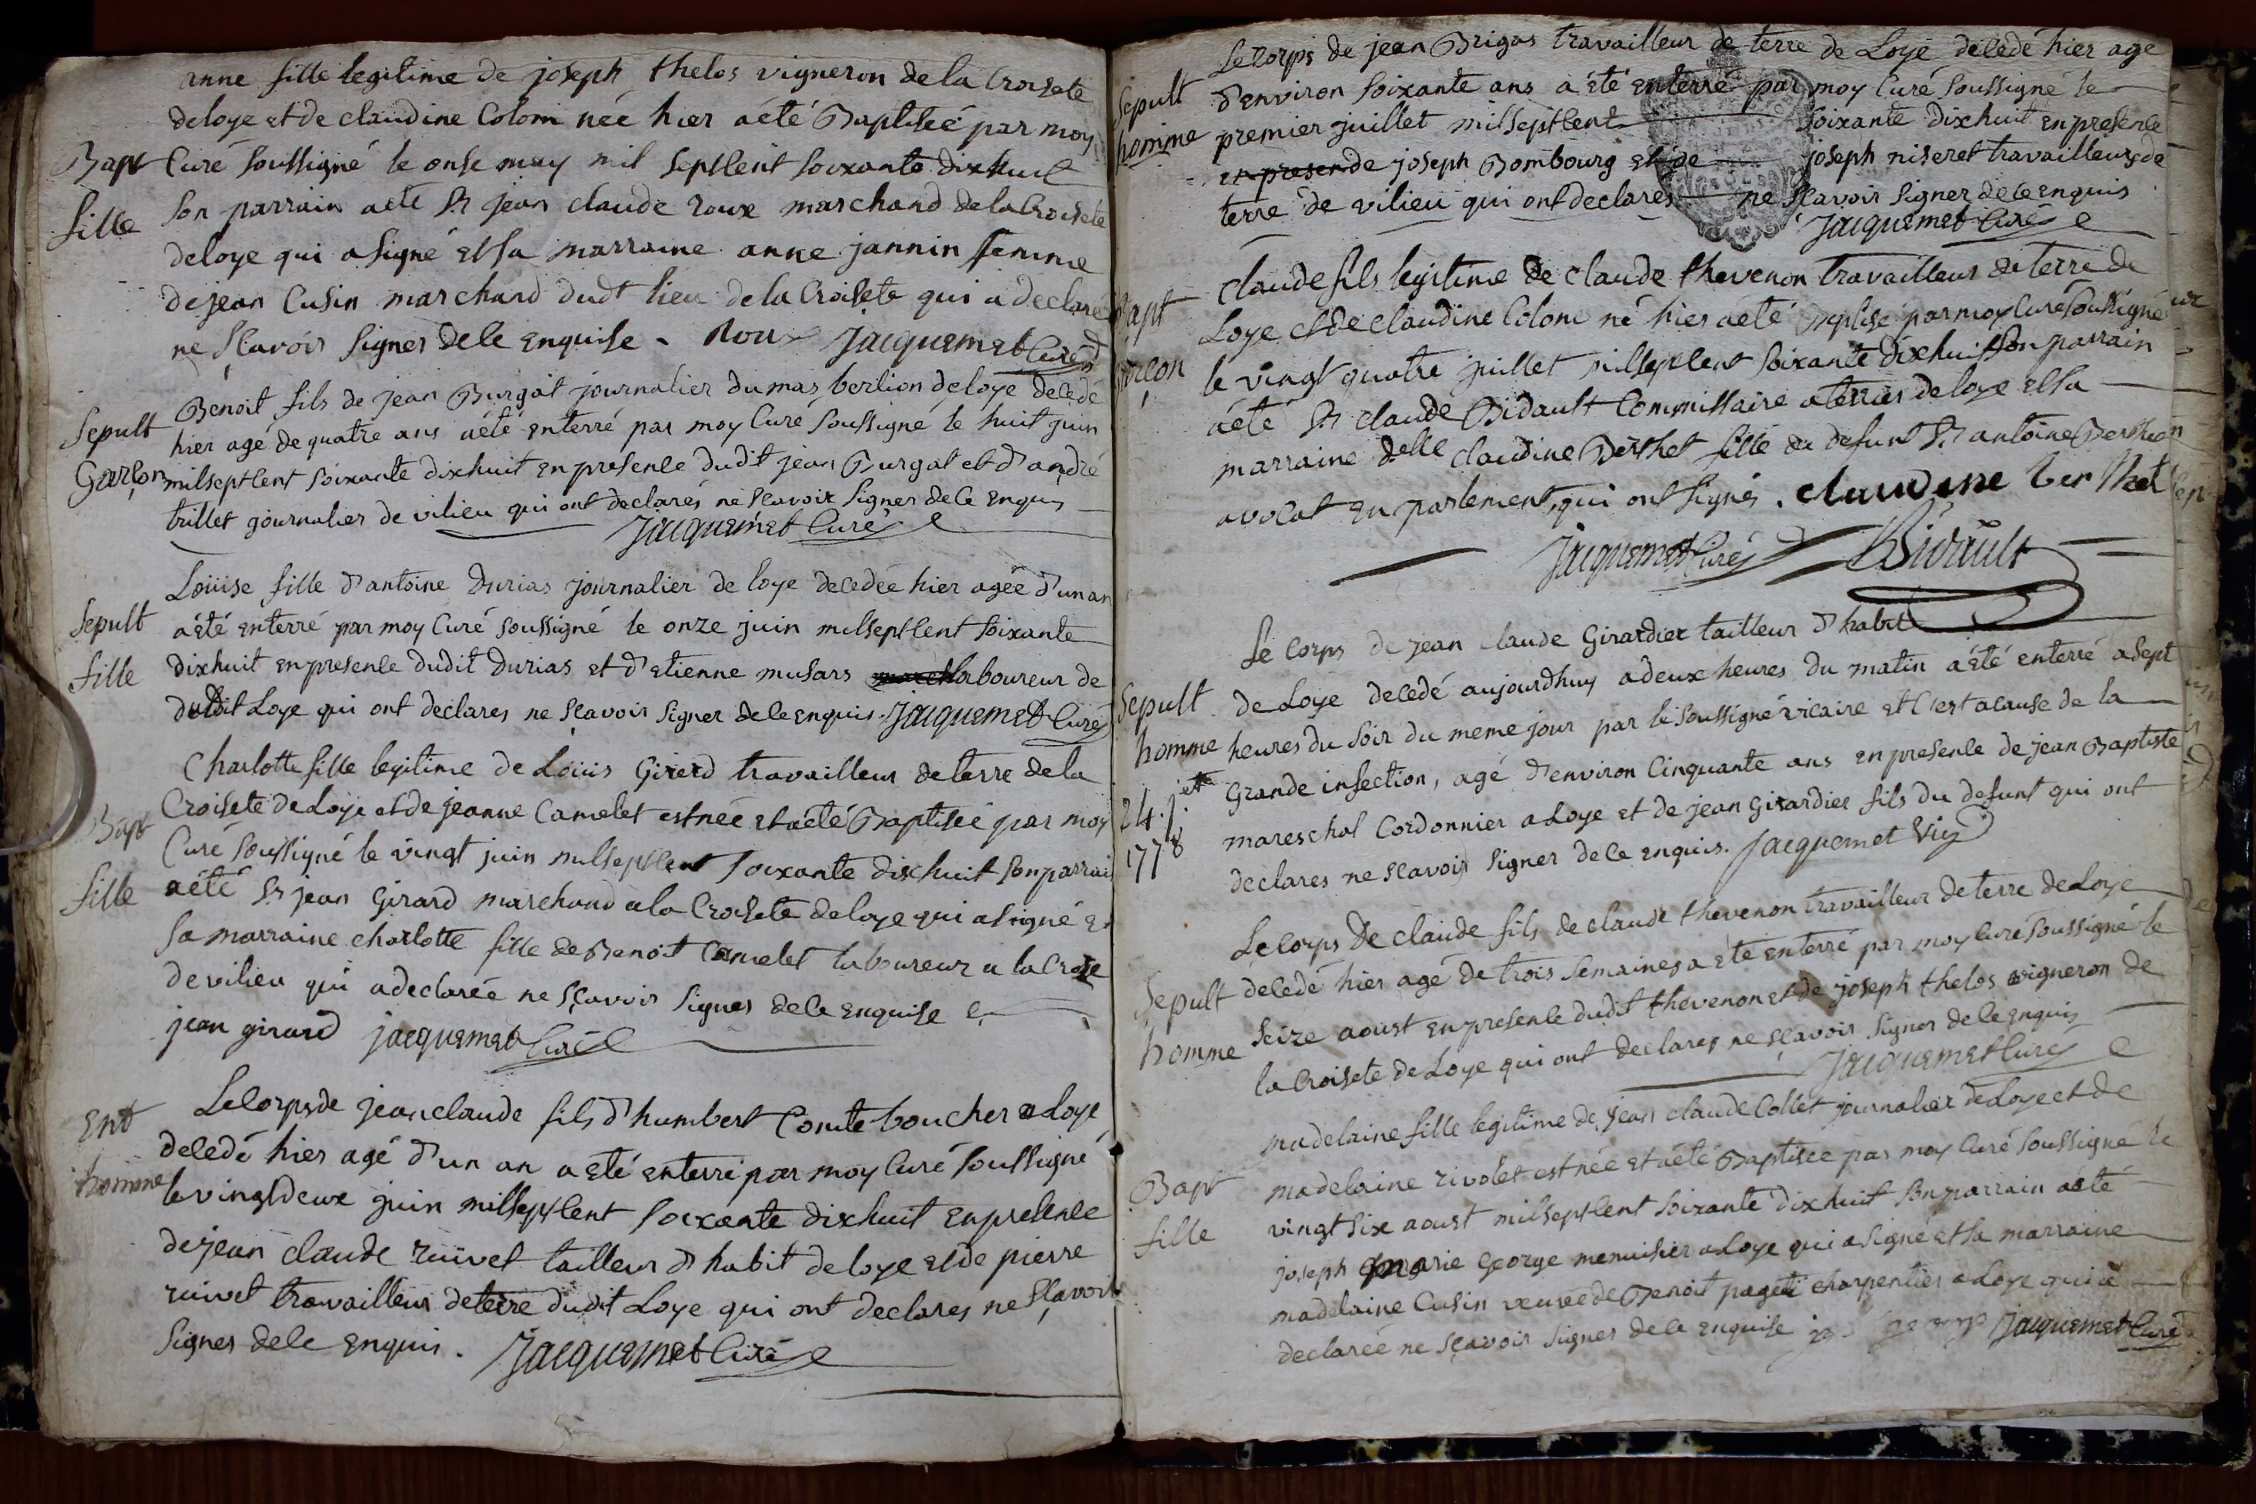 anne fille legitime de joseph thelos vigneron de la Croisete
deloye et de claudine Colom née hier a été Baptisée par moy
Bapt Curé soussigné le onse may mil septcent soixante dixhuit
fille son parrain a eté Sr jean claude roux marchand de la Croisete
deloye qui a signé et sa marraine anne jannin femme
de jean Cusin marchand dudt lieu de la Croisete qui a declaré
ne sçavoir signer de ce enquise . Roux jacquemet Curé
Benoit fils de jean Burgat journalier du mas berlion deloye decedé
Sepult hier agé de quatre ans a été enterré par moy Curé soussigné le huit juin
Garçon milseptcent soixante dixhuit en presence dudit jean Burgat et d'andré
trillet journalier de vilieu qui ont declarés ne scavoir signer de ce enquis
jacquemet Curé
Loüise fille d'antoine Durias journalier de loye decedée hier agée d'un an
Sepult a été enterré par moy Curé soussigné le onze juin milseptcent soixante
fille dixhuit en presence dudit Durias et d'etienne musars laboureur de
dudit Loye qui ont declares ne scavoir signer de ce enquis. jacquemet Curé
Charlotte fille legitime de Loüis Girerd travailleur de terre de la
Croisete de Loye et de jeanne Camelet est née et a été Baptisée par moy
Bapt Curé soussigné le vingt juin milseptcent soixante dixhuit son parrain
fille a été Sr jean Girard marchand a la Croisete de loye qui a signé et
sa marraine charlotte fille de Benoit Camelet laboureur a la Croze
de vilieu qui a declarée ne sçavoir signer de ce enquise
jean girard jacquemet Curé
Le Corps de jean claude fils d'humbert Comte boucher a Loye
Ent decedé hier agé d'un an a eté enterré par moy Curé soussigné
homme le vingtdeux juin milseptcent soixante dixhuit en presence
de jean claude ruivet tailleur d'habit de loye et de pierre
ruivet travailleur de terre dudit Loye qui ont declares ne sçavoir
signer de ce enquis . jacquemet Curé
Le Corps de jean Brigas travailleur de terre de Loye decedé hier age
Sepult d'environ soixante ans a été enterré par moy Curé soussigné le
homme premier juillet milseptcent soixante dixhuit en presence
en presence de joseph Bombourg et de joseph niseret travailleurs de
terre de vilieu qui ont declares ne scavoir signer de ce enquis
jacquemet Curé
Claude fils legitime de Claude thevenon travailleur de terre de
Bapt Loye et de Claudine Colom né hier a été Baptisé par moy Curé soussigné
garçon le vingt quatre juillet milseptcent soixante dixhuit son parrain
a été Sr claude Bidault Commissaire a terrier de loye et sa
marraine delle claudine Berthet fille du defunt Sr antoine Berthet
avocat en parlement, qui ont signés . claudine berthet
jacquemet Curé Bidault
Le Corps de jean claude Girardier tailleur d'habit
Sepult de Loye decedé aujourdhuy a deux heures du matin a été enterré a sept
homme heures du soir du meme jour par le soussigné vicaire et c'est a cause de la
24. jet Grande infection, agé d'environ Cinquante ans en presence de jean Baptiste
1778 mareschal Cordonnier a Loye et de jean Girardier fils du defunt qui ont
declares ne scavoir signer de ce enquis. jacquemet vic
Le Corps de claude fils de claude thevenon travailleur de terre de Loye
Sepult decedé hier agé de trois semaines a eté enterré par moy Curé soussigné le
homme seize aoust en presence dudit thevenon et de joseph thelos vigneron de
la Croisete de Loye qui ont declares ne scavoir signer de ce enquis
jacquemet Curé
madelaine fille legitime de jean claude Collet journalier de Loye et de
Bapt madelaine rivolet est née et a été Baptisée par moy Curé soussigné le
fille vingt six aoust milseptcent soixante dixhuit son parrain a été
joseph marie George menuisier a Loye qui a signé et sa marraine
madelaine Cusin veuve de Benoit paget charpentier a Loye qui a
declarée ne sçavoir signer de ce enquise jacquemet Curé